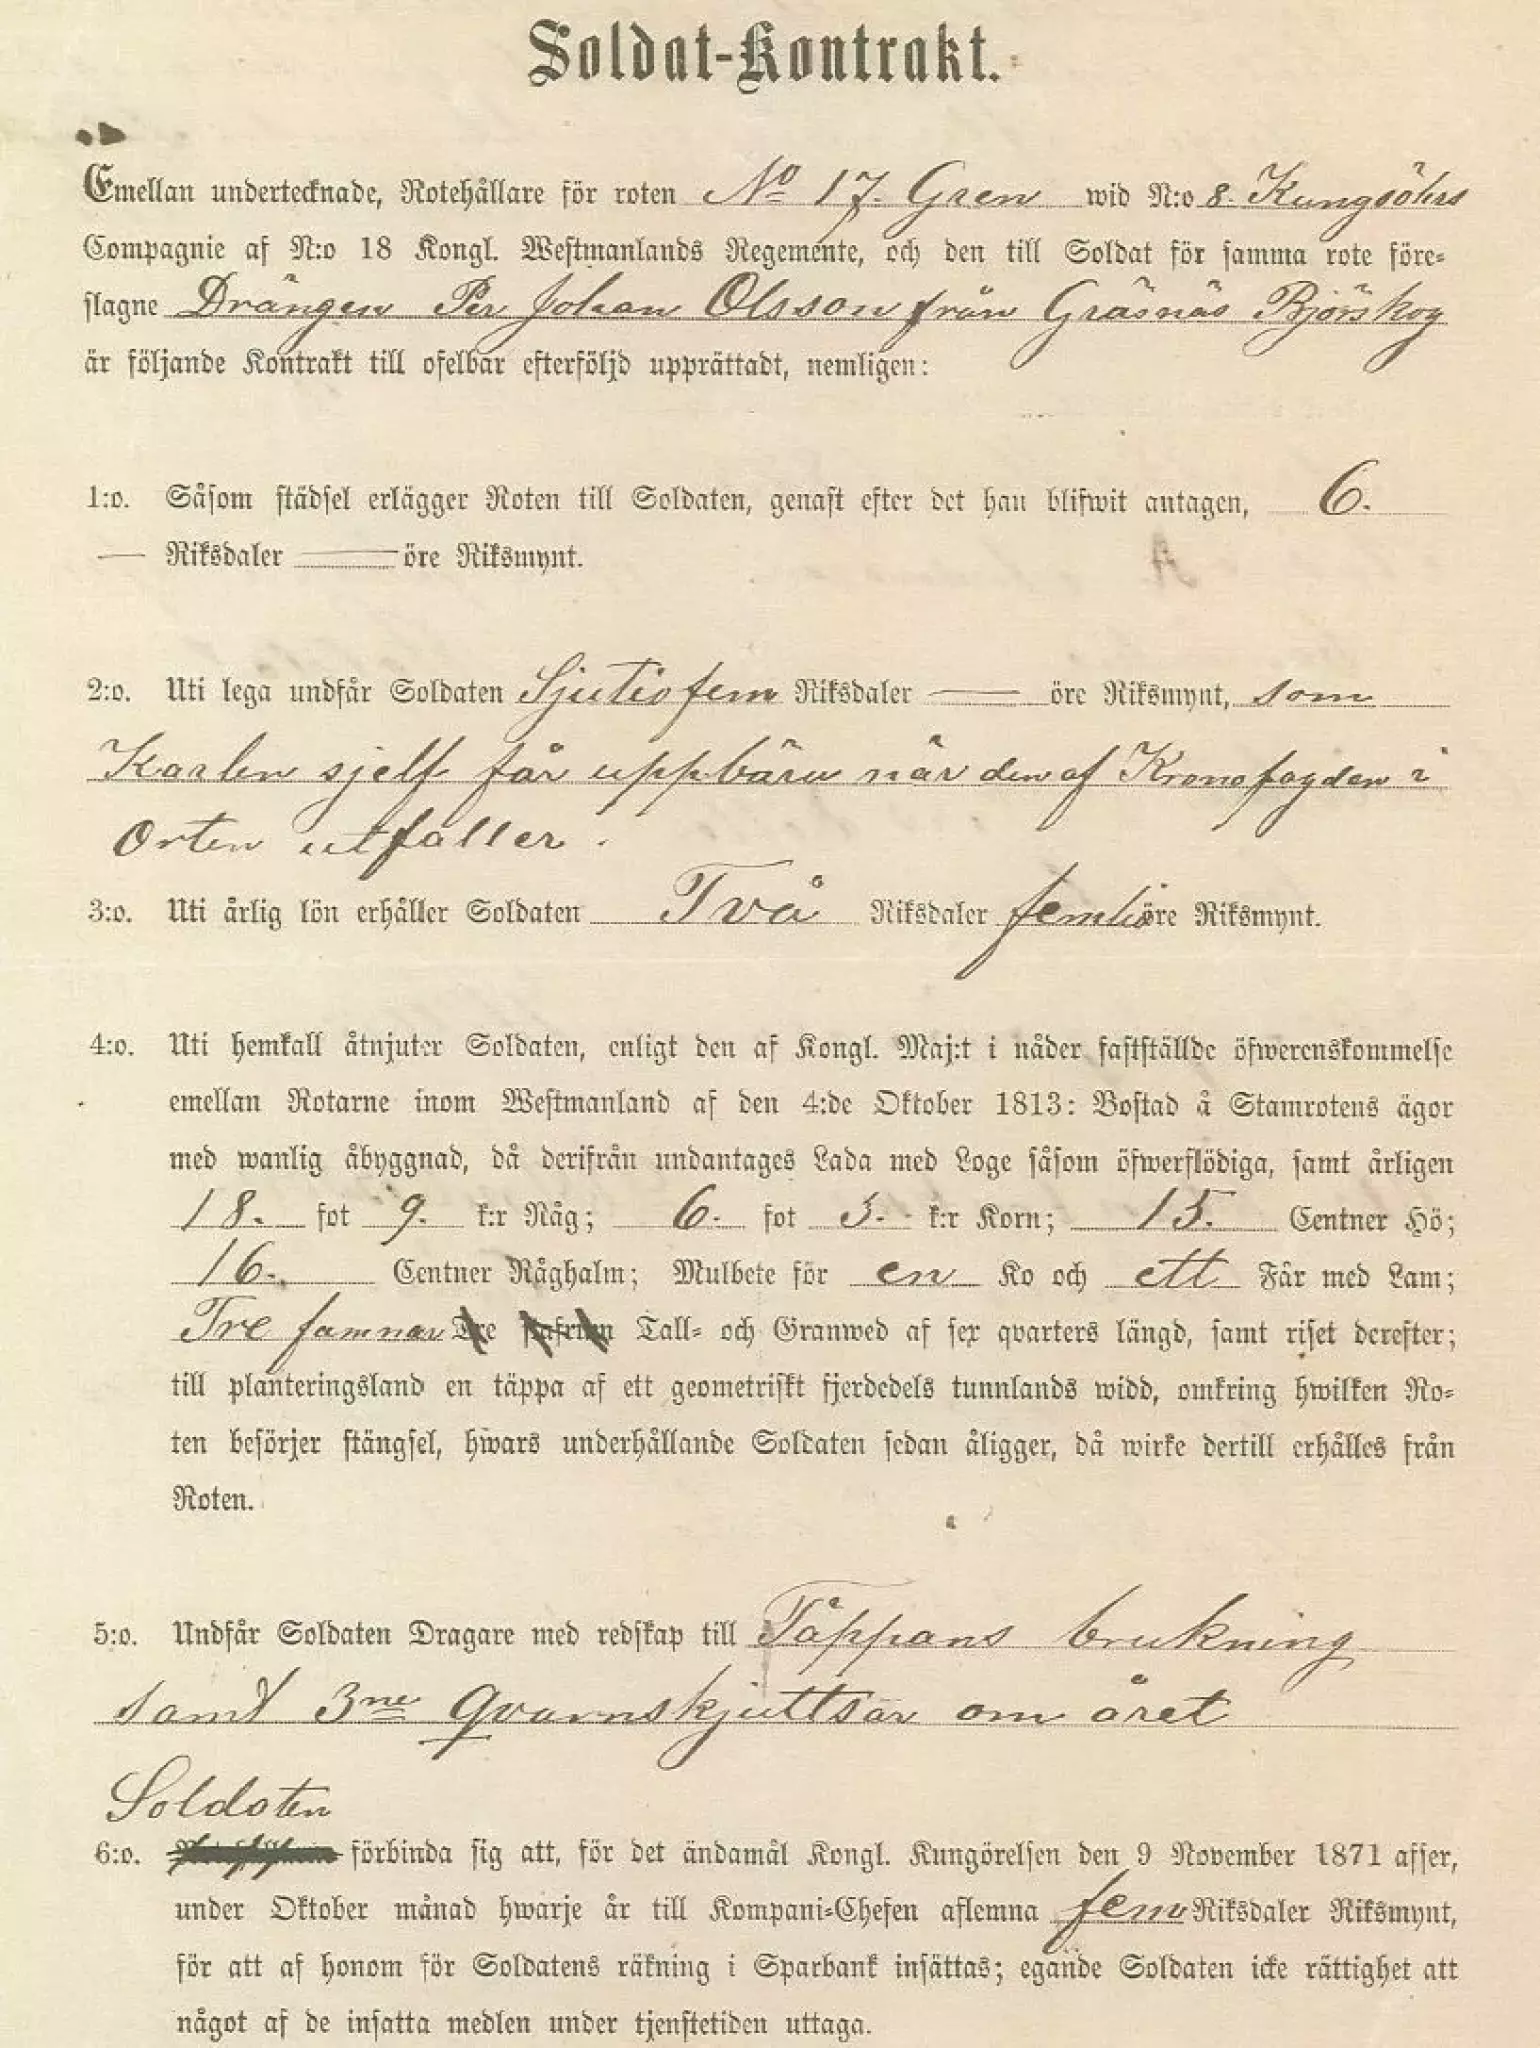 Soldat-Kontrakt.
Emellan undertecknade, Rotehållare för roten No 17. Gren wid N:o 8. Kungsöhrs
Compagnie af N:o 18 Kongl. Westmanlands Regemente, och den till Soldat för samma rote före-
slagne Drängen Per Johan Olsson från Gräsnäs Björskog
är följande Kontrakt till ofelbar efterföljd upprättadt, nemligen:
1:o. Såsom städsel erlägger Roten till Soldaten, genast efter det han blifwit antagen, 6.
— Riksdaler — öre Riksmynt.
2:o. Uti lega undfår Soldaten Sjutiofem Riksdaler — öre Riksmynt, som
Karlen sjelf får uppbära när den af Kronofogden i
Orten utfaller.
3:o. Uti årlig lön erhåller Soldaten Två Riksdaler femtio öre Riksmynt.
4:o. Uti hemkall åtnjuter Soldaten, enligt den af Kongl. Maj:t i nåder fastställde öfwerenskommelse
emellan Rotarne inom Westmanland af den 4:de Oktober 1813: Bostad å Stamrotens ägor
med wanlig åbyggnad, då derifrån undantages Lada med Loge såsom öfwerflödiga, samt årligen
18. fot 9. k:r Råg; 6. fot 3. k:r Korn; 15. Centner Hö;
16. Centner Råghalm; Mulbete för en Ko och ett Får med Lam;
Tre famnar Tre Tall- och Granwed af sex qvarters längd, samt riset derefter;
till planteringsland en täppa af ett geometriskt fjerdedels tunnlands widd, omkring hwilken Ro-
ten besörjer stängsel, hwars underhållande Soldaten sedan åligger, då wirke dertill erhålles från
Roten.
5:o. Undfår Soldaten Dragare med redskap till Täppans brukning
samt 3ne qvarnskjuttsar om året
Soldaten
6:o. förbinda sig att, för det ändamål Kongl. Kungörelsen den 9 November 1871 afser,
under Oktober månad hwarje år till Kompani-Chefen aflemna fem Riksdaler Riksmynt,
för att af honom för Soldatens räkning i Sparbank insättas; egande Soldaten icke rättighet att
något af de insatta medlen under tjenstetiden uttaga.